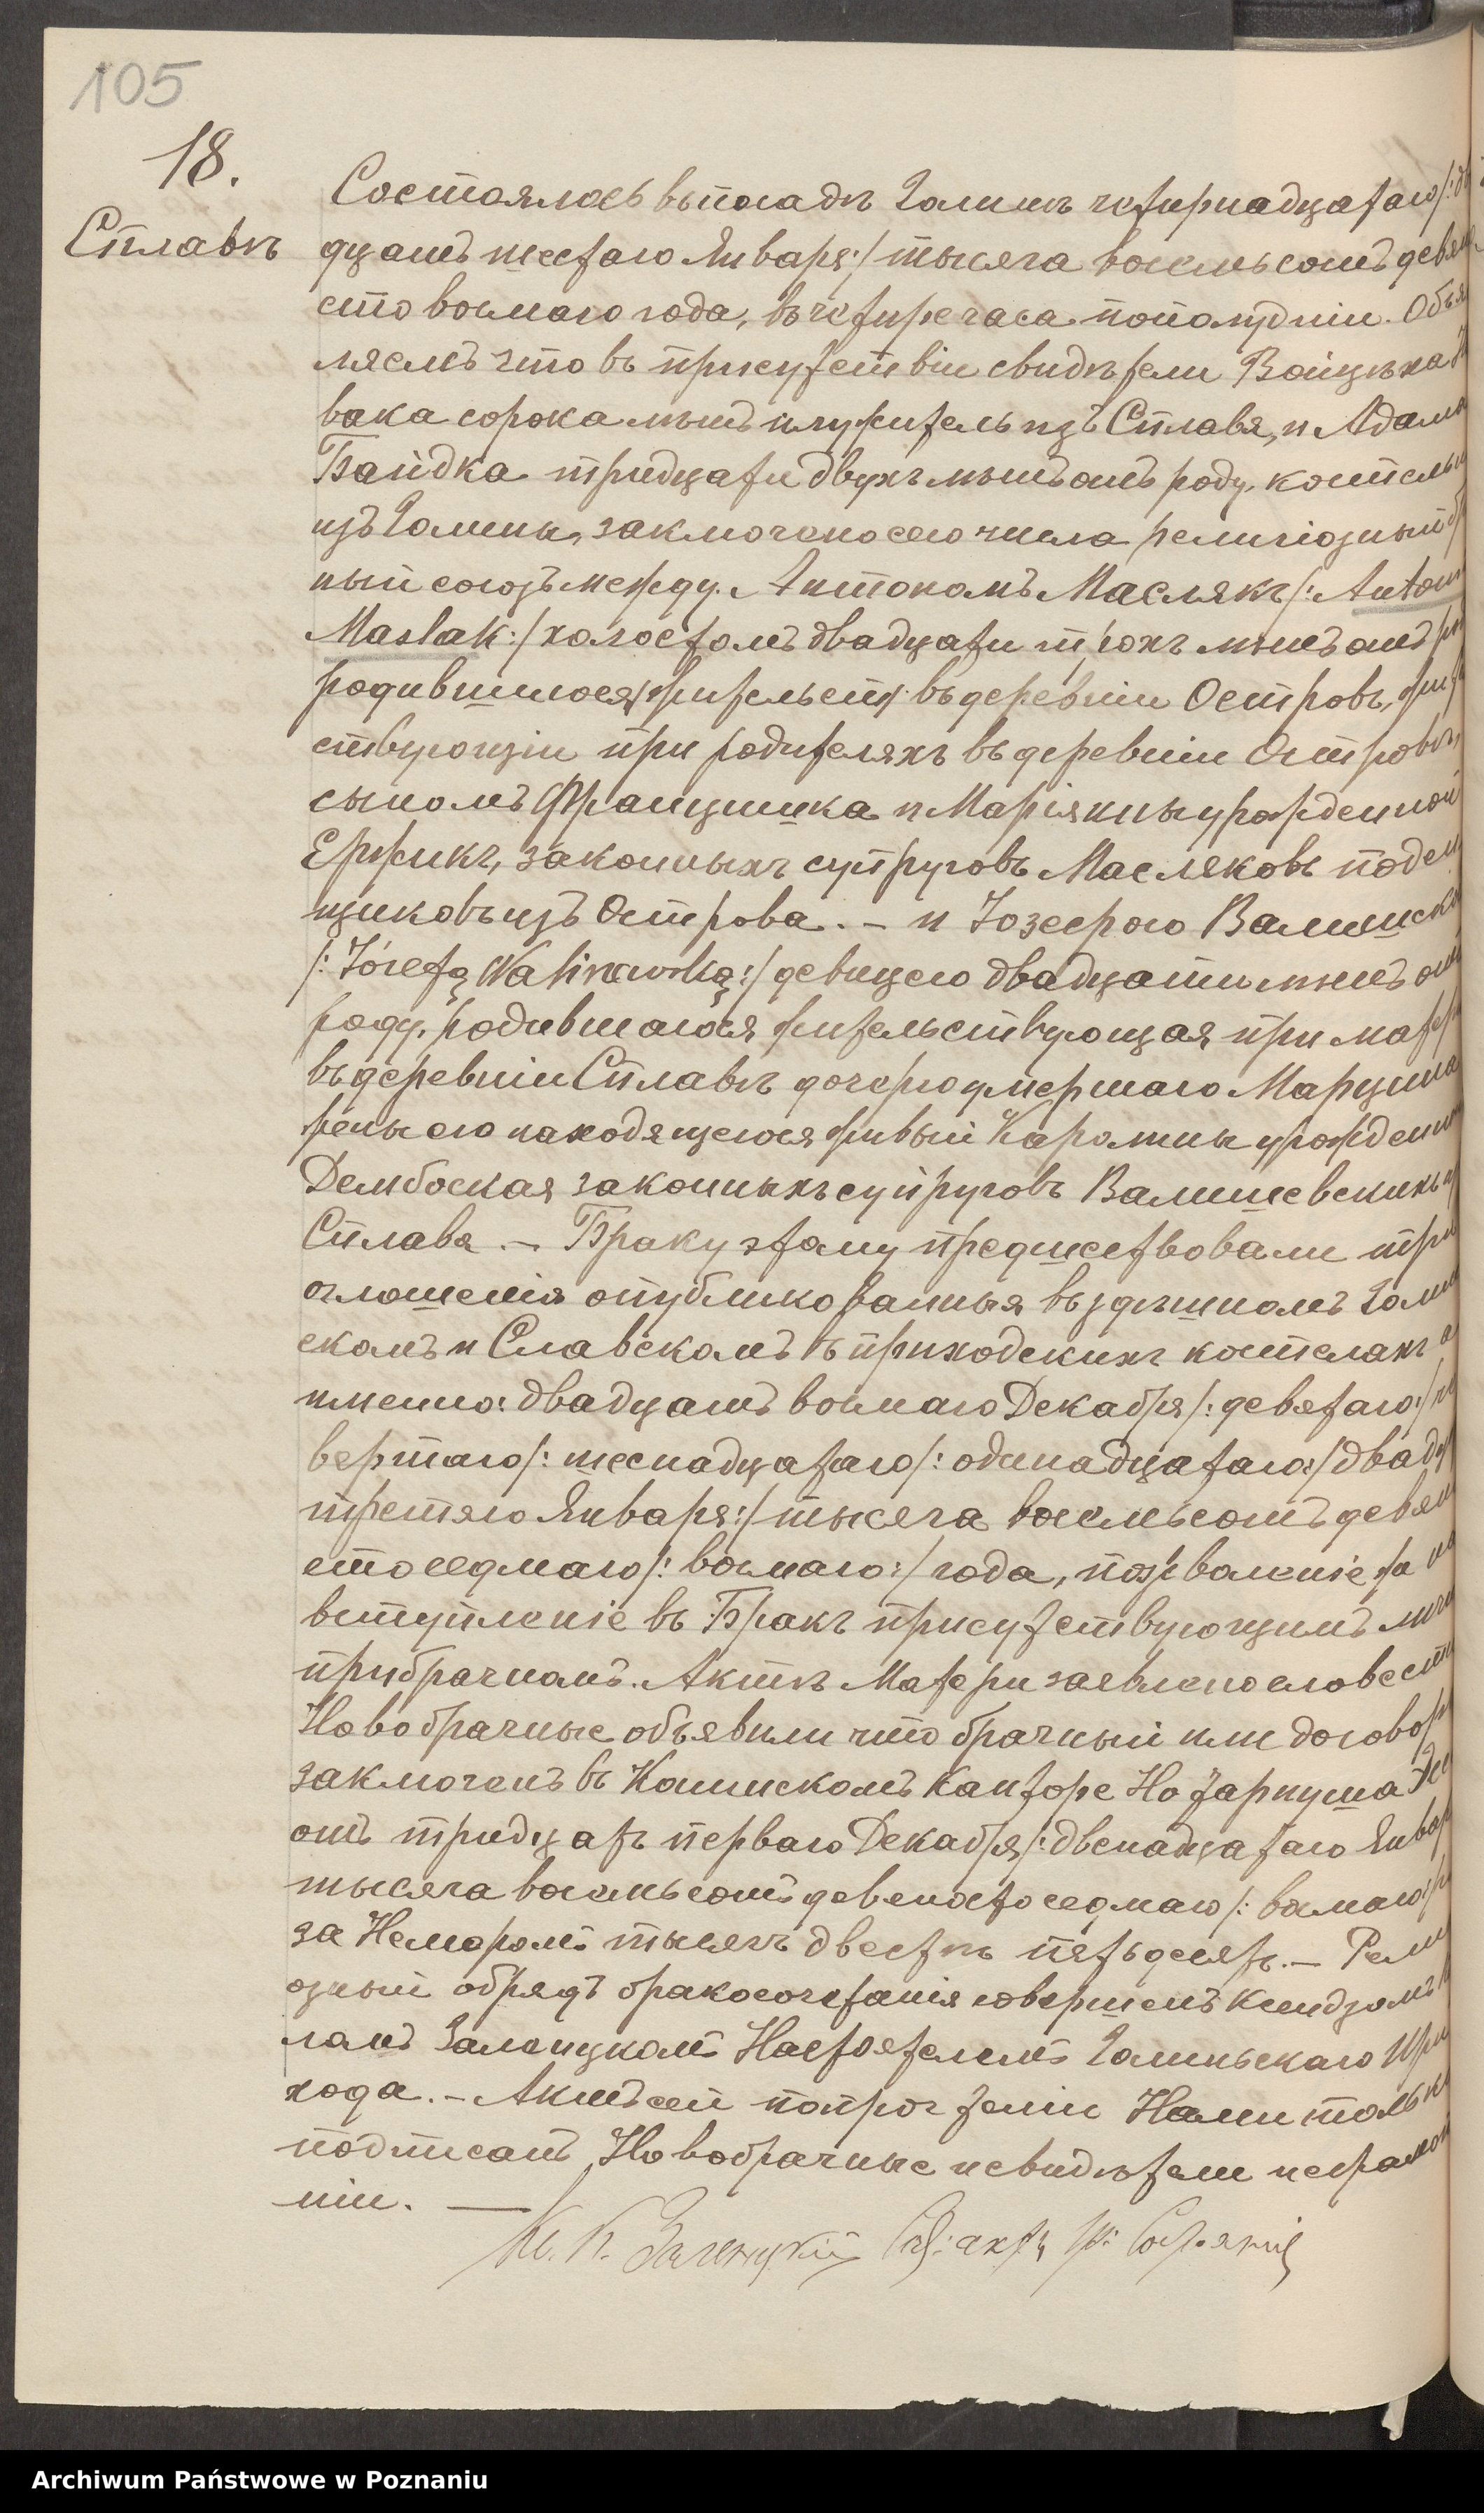 105
18.
Сплавѣ
Состоялось въ посадѣ Голинѣ четырнадцатаго /: два
дцать шестаго Января :/ тысяча восемьсотъ девяно
сто восмаго года, въ четыре часа пополудніи. Объя
вляемъ что въ присутствіи свидѣтели Войцѣха
вака сорока лѣтъ служитель изъ Сплавя, и Адама
Байдка тридцати двухъ лѣтъ отъ роду, костельн
изъ Голины, заключено сего числа религіозный б
ный союзъ между Антономъ Маслякъ /: Antoni
Maślak :/ холостомъ двадцати трохъ лѣтъ отъ ро
родившимся жительств. въ деревніи Островъ, жит
ствующіи при родителяхъ въ деревніи Островѣ,
сыномъ Францишка и Маріянны урожденной
Ержикъ, законныхъ супруговъ Масляковъ поден
щиковъ изъ Острова. — и Іозефою Валишевско
/: Józefą Waliszewską :/ девицею двадцати лѣтъ отъ
роду, родившаюся жительствующая при матери
въ деревніи Сплавѣ дочерю умершаго Марцина
жены его находящеюся живый Каролины урожденн
Дембоская законныхъ супруговъ Валишевскихъ из
Сплавя. — Браку этому предшествовали три
оглошенія опубликованныя въ здѣшномъ Голин
скомъ и Славскомъ въ приходскихъ костелахъ а
именно: двадцать восмаго Декабря /: девятаго :/ че
вертаго /: шеснадцатаго /: одинадцатаго :/ двадц
третяго Января :/ тысяча восемьсотъ девян
сто седмаго /: восмаго :/ года, позволеніе на
вступленіе въ Бракъ присутствующимъ лич
при брачномъ. Актѣ Матери заявлено словестн
Новобрачные объявили что брачный ими договор
заключенъ въ Конинскомъ Канторе Нотаріуша
отъ тридцать перваго Декабря /: двенадцатаго Январ
тысяча восемьсотъ девеносто седмаго /: восмаго :/
за Немеромъ тысячъ двестѣ пятьдесять. — Рели
озный обрядъ бракосочетанія совершенъ Ксендзомъ
ломъ Заленцкомъ Настоятелемъ Голинскаго При
хода. — Актъ сей по прочтеніи Нами только
подписанъ Новобрачные и свидѣтели неграмот
ніи. —
Кс. К. Заленцкій Сод: акты гр: Состоянія
Archiwum Państwowe w Poznaniu